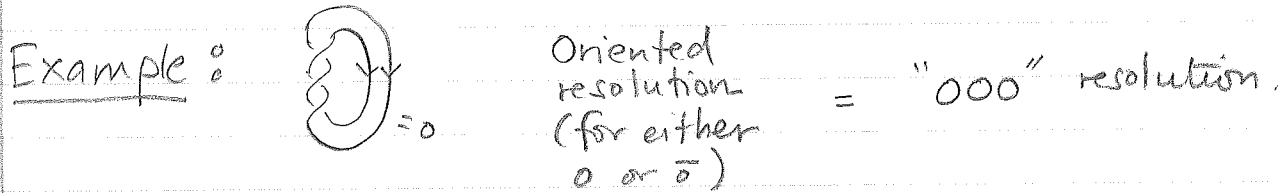 Example :
= o
Oriented
resolution
(for either
o or ō)
= "000" resolution.